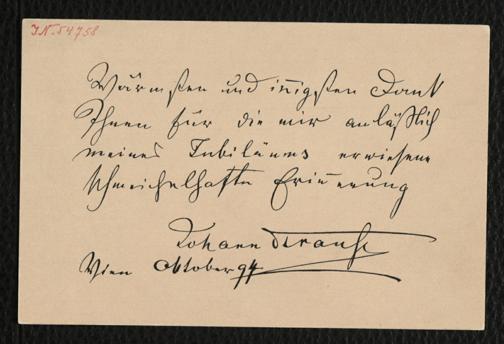 IN. 54758
Wärmsten und iñigsten Dank
Ihnen für die mir anläßlich
meines Jubiläums erwiesene
schmeichelhafte Erin̄erung
Johann Strauss
Wien Oktober 94